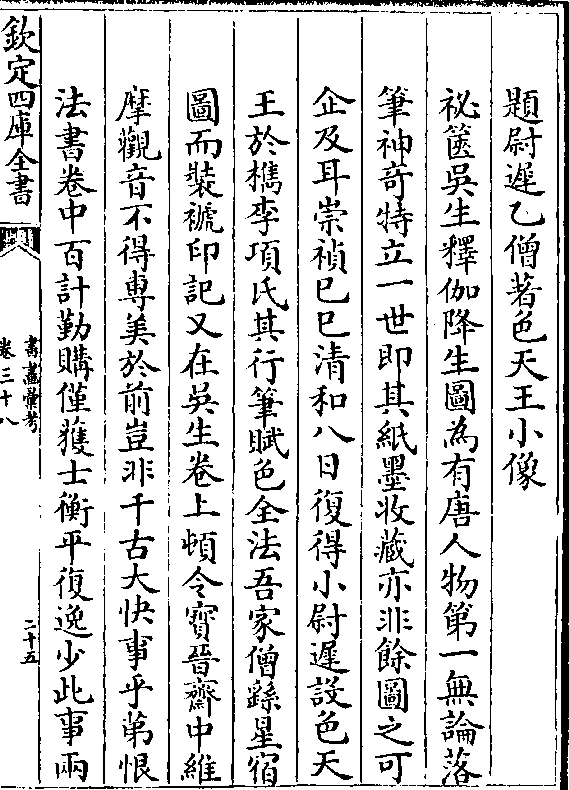 題尉遲乙僧著色天王小像
祕篋吳生釋伽降生圖為有唐人物第一無論落
筆神奇特立一世即其紙墨收藏亦非餘圖之可
企及耳崇禎已巳清和八日復得小尉遲設色天
王於檇李項氏其行筆賦色全法吾家僧繇星宿
圖而裝褫印記又在吳生卷上頓令寳晉齋中維
摩觀音不得專美於前豈非千古大快事乎苐恨
法書卷中百計勤購僅獲士衡平復逸少此事兩
欽定四庫全書
書畫彙考
卷三十八
二十五